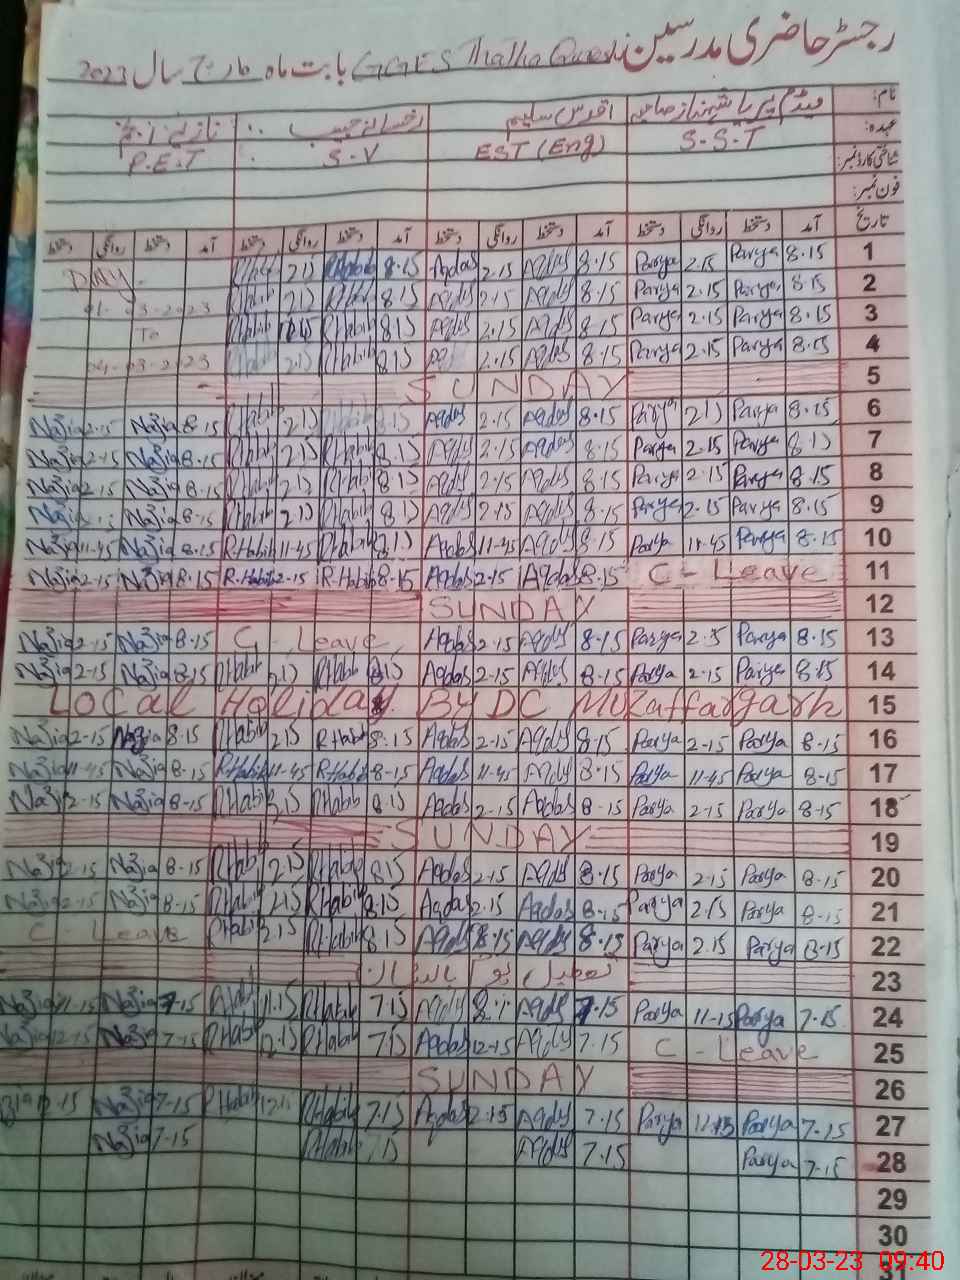 رجسٹر حاضری مدرسین GGES Thatha Qureshi بابت ماہ مارچ سال 2023
نام: میڈم پریا شہناز صاحبہ اقدس سلیم رخسانہ حبیب نازیہ انجم
عہدہ: S.S.T EST (Eng) S.V P.E.T
شناختی کارڈ نمبر:
فون نمبر:
تاریخ آمد دستخط روانگی دستخط آمد دستخط روانگی دستخط آمد دستخط روانگی دستخط آمد دستخط روانگی دستخط
DAY RHabib 2.15 RHabib 8.15 Aqdas 2.15 Aqdas 8.15 Parya 2.15 Parya 8.15 1
01-03-2023 RHabib 2.15 RHabib 8.15 Aqdas 2.15 Aqdas 8.15 Parya 2.15 Parya 8.15 2
To RHabib RHabib 8.15 Aqdas 2.15 Aqdas 8.15 Parya 2.15 Parya 8.15 3
04-03-2023 RHabib 2.15 RHabib 8.15 2.15 Aqdas 8.15 Parya 2.15 Parya 8.15 4
SUNDAY 5
Nazia 2-15 Nazia 8-15 RHabib 2.15 8.15 Aqdas 2.15 Aqdas 8.15 Parya 2.15 Parya 8.15 6
Nazia 2-15 Nazia 8-15 RHabib 2.15 RHabib 8.15 Aqdas 2.15 Aqdas 8.15 Parya 2.15 Parya 8.15 7
Nazia 2-15 Nazia 8-15 RHabib 2.15 RHabib 8.15 Aqdas 2.15 Aqdas 8.15 Parya 2.15 Parya 8.15 8
Nazia Nazia 8-15 RHabib 2.15 RHabib 8.15 Aqdas 2.15 Aqdas 8.15 Parya 2.15 Parya 8.15 9
Nazia 11-45 Nazia 8-15 R.Habib 11-45 RHabib 8.15 Aqdas 11-45 Aqdas 8.15 Parya 11-45 Parya 8.15 10
Nazia 2-15 Nazia 8-15 R.Habib 2-15 R.Habib 8-15 Aqdas 2.15 Aqdas 8.15 C - Leave 11
SUNDAY 12
Nazia 2-15 Nazia 8-15 C - Leave Aqdas 2.15 Aqdas 8.15 Parya 2.15 Parya 8.15 13
Nazia 2-15 Nazia 8-15 RHabib 2.15 RHabib 8.15 Aqdas 2.15 Aqdas 8.15 Parya 2.15 Parya 8.15 14
Local Holiday By DC Muzaffargarh 15
Nazia 2-15 Nazia 8-15 RHabib 2.15 R.Habib 8.15 Aqdas 2-15 Aqdas 8-15 Parya 2-15 Parya 8-15 16
Nazia 11-45 Nazia 8-15 R.Habib 11-45 R.Habib 8-15 Aqdas 11-45 Aqdas 8-15 Parya 11-45 Parya 8-15 17
Nazi 2-15 Nazia 8-15 RHabib 2.15 RHabib 8.15 Aqdas 2.15 Aqdas 8-15 Parya 2.15 Parya 8-15 18
SUNDAY 19
Nazia 2-15 Nazia 8-15 RHabib 2.15 RHabib 8.15 Aqdas 2.15 Aqdas 8.15 Parya 2-15 Parya 8-15 20
Nazia 2-15 Nazia 8-15 RHabib 2.15 RHabib 8.15 Aqdas 2.15 Aqdas 8-15 Parya 2.15 Parya 8-15 21
C Leave RHabib 2.15 RHabib 8.15 Aqdas 8.15 Aqdas 8.15 Parya 2.15 Parya 8-15 22
تعطیل یوم پاکستان 23
Nazia 11-15 Nazia 7-15 RHabib 11.15 RHabib 7.15 Aqdas Aqdas 7.15 Parya 11-15 Parya 7.15 24
Nazia 12-15 Nazia 7-15 RHabib 12.15 RHabib 7.15 Aqdas 12-15 Aqdas 7.15 C - Leave 25
SUNDAY 26
zia 12-15 Nazia 7-15 RHabib 12.15 RHabib 7.15 Aqdas 12.15 Aqdas 7.15 Parya Parya 7.15 27
Nazia 7-15 RHabib 7.15 Aqdas 7.15 Parya 7.15 28
29
30
28-03-23 09:40